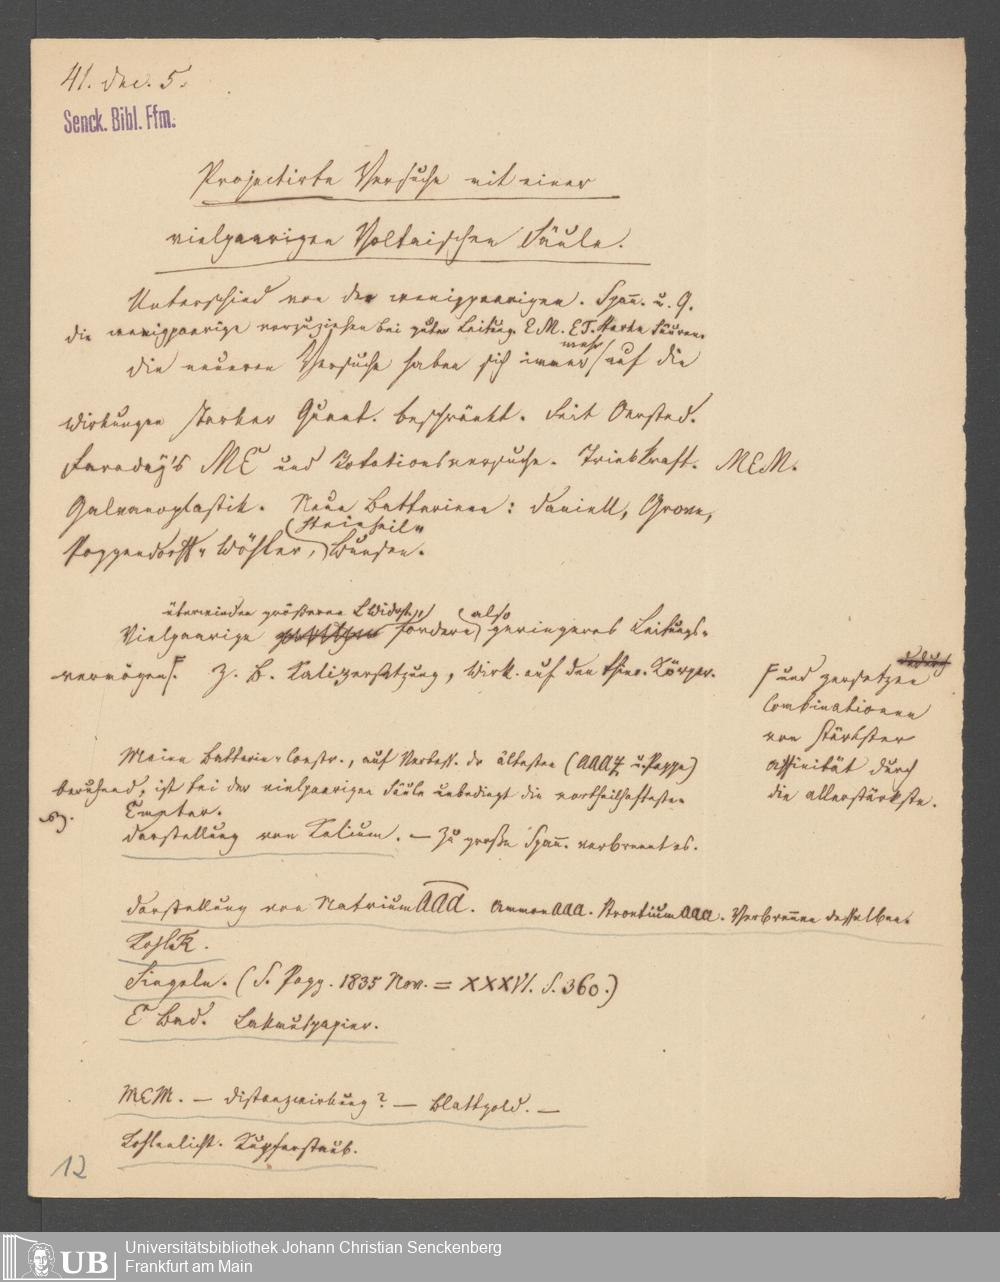 41. Dec. 5.
Senck. Bibl. Ffm.
Projectirte Versuche mit einer
vielpaarigen Voltaischen Säule.
Unterschied von der wenigpaarigen. Span. u. Q.
die wenigpaarige vorzuziehen bei guter Leitung. E M. E T. starke Säuren
mehr
die neueren Versuche haben sich immer auf die
Wirkungen starker Quant. beschränkt. Seit Oersted.
Faraday's ME und Rotationsversuche. Triebkraft. MEM.
Galvanoplastik. Neue Batterieen: Daniell, Grove,
Steinheil
Poggendorff, Wöhler, Bunsen.
überwinden größeren LWiderst. also
Vielpaarige fordern geringeres Leitungs-
vermögen. Z. B. Kalizersetzung, Wirk. auf den thier. Körper.
dadurch
und zersetzen
Combinationen
von stärkster
Affinität durch
die allerstärkste.
Meine Batterie-Constr., auf Verbess. der ältesten (u. Pappe)
beruhend, ist bei der vielpaarigen Säule unbedingt die vortheilhafteste.
Darstellung von Kalium. — Zu große Span. verbrennt es.
Darstellung von Natrium Ammon Strontium Verbrennen desselben.
Siegeln. (S. Pogg. 1835 Nov. = XXXVI. S. 360.)
E Bad. Lakmuspapier.
MEM. — Distanzwirkung? — Blattgold. —
Kohlenlicht. Kupferstaub.
12
UB
Universitätsbibliothek Johann Christian Senckenberg
Frankfurt am Main